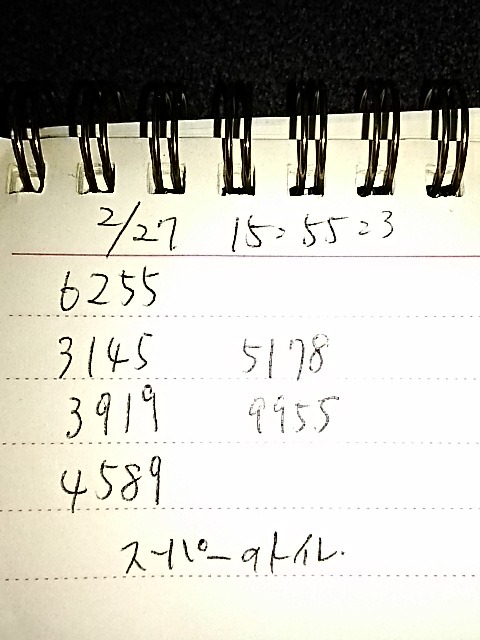 2/27 15:55:3
6255
3145 5178
3919 9955
4589
スーパーのトイレ.